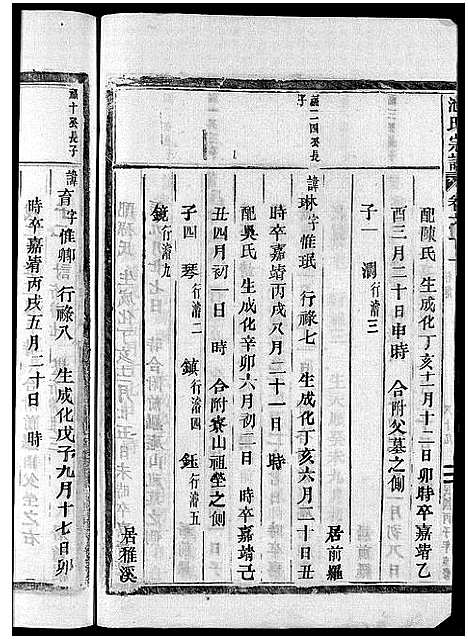 氏宗譜
配陳氏 生成化丁亥十二月十二日卯時卒嘉靖乙
酉三月二十日申時 合附父墓之側
子一 澗行濬三
居前羅
福二四公長子
諱琳字惟珉 行祿七 生成化丁亥六月二十日丑
時卒嘉靖丙戌八月二十一日 時
配吳氏 生成化辛卯六月初二日 時卒嘉靖己
丑四月初一日 時 合附寮山祖塋之側
子四 琴行濬二 鎮行濬四 鈺行濬五
鏡行濬九
居雅溪
福十公長子
諱育字惟卿 行祿八 生成化戊子九月十七日卯
時卒嘉靖丙戌五月二十日 時